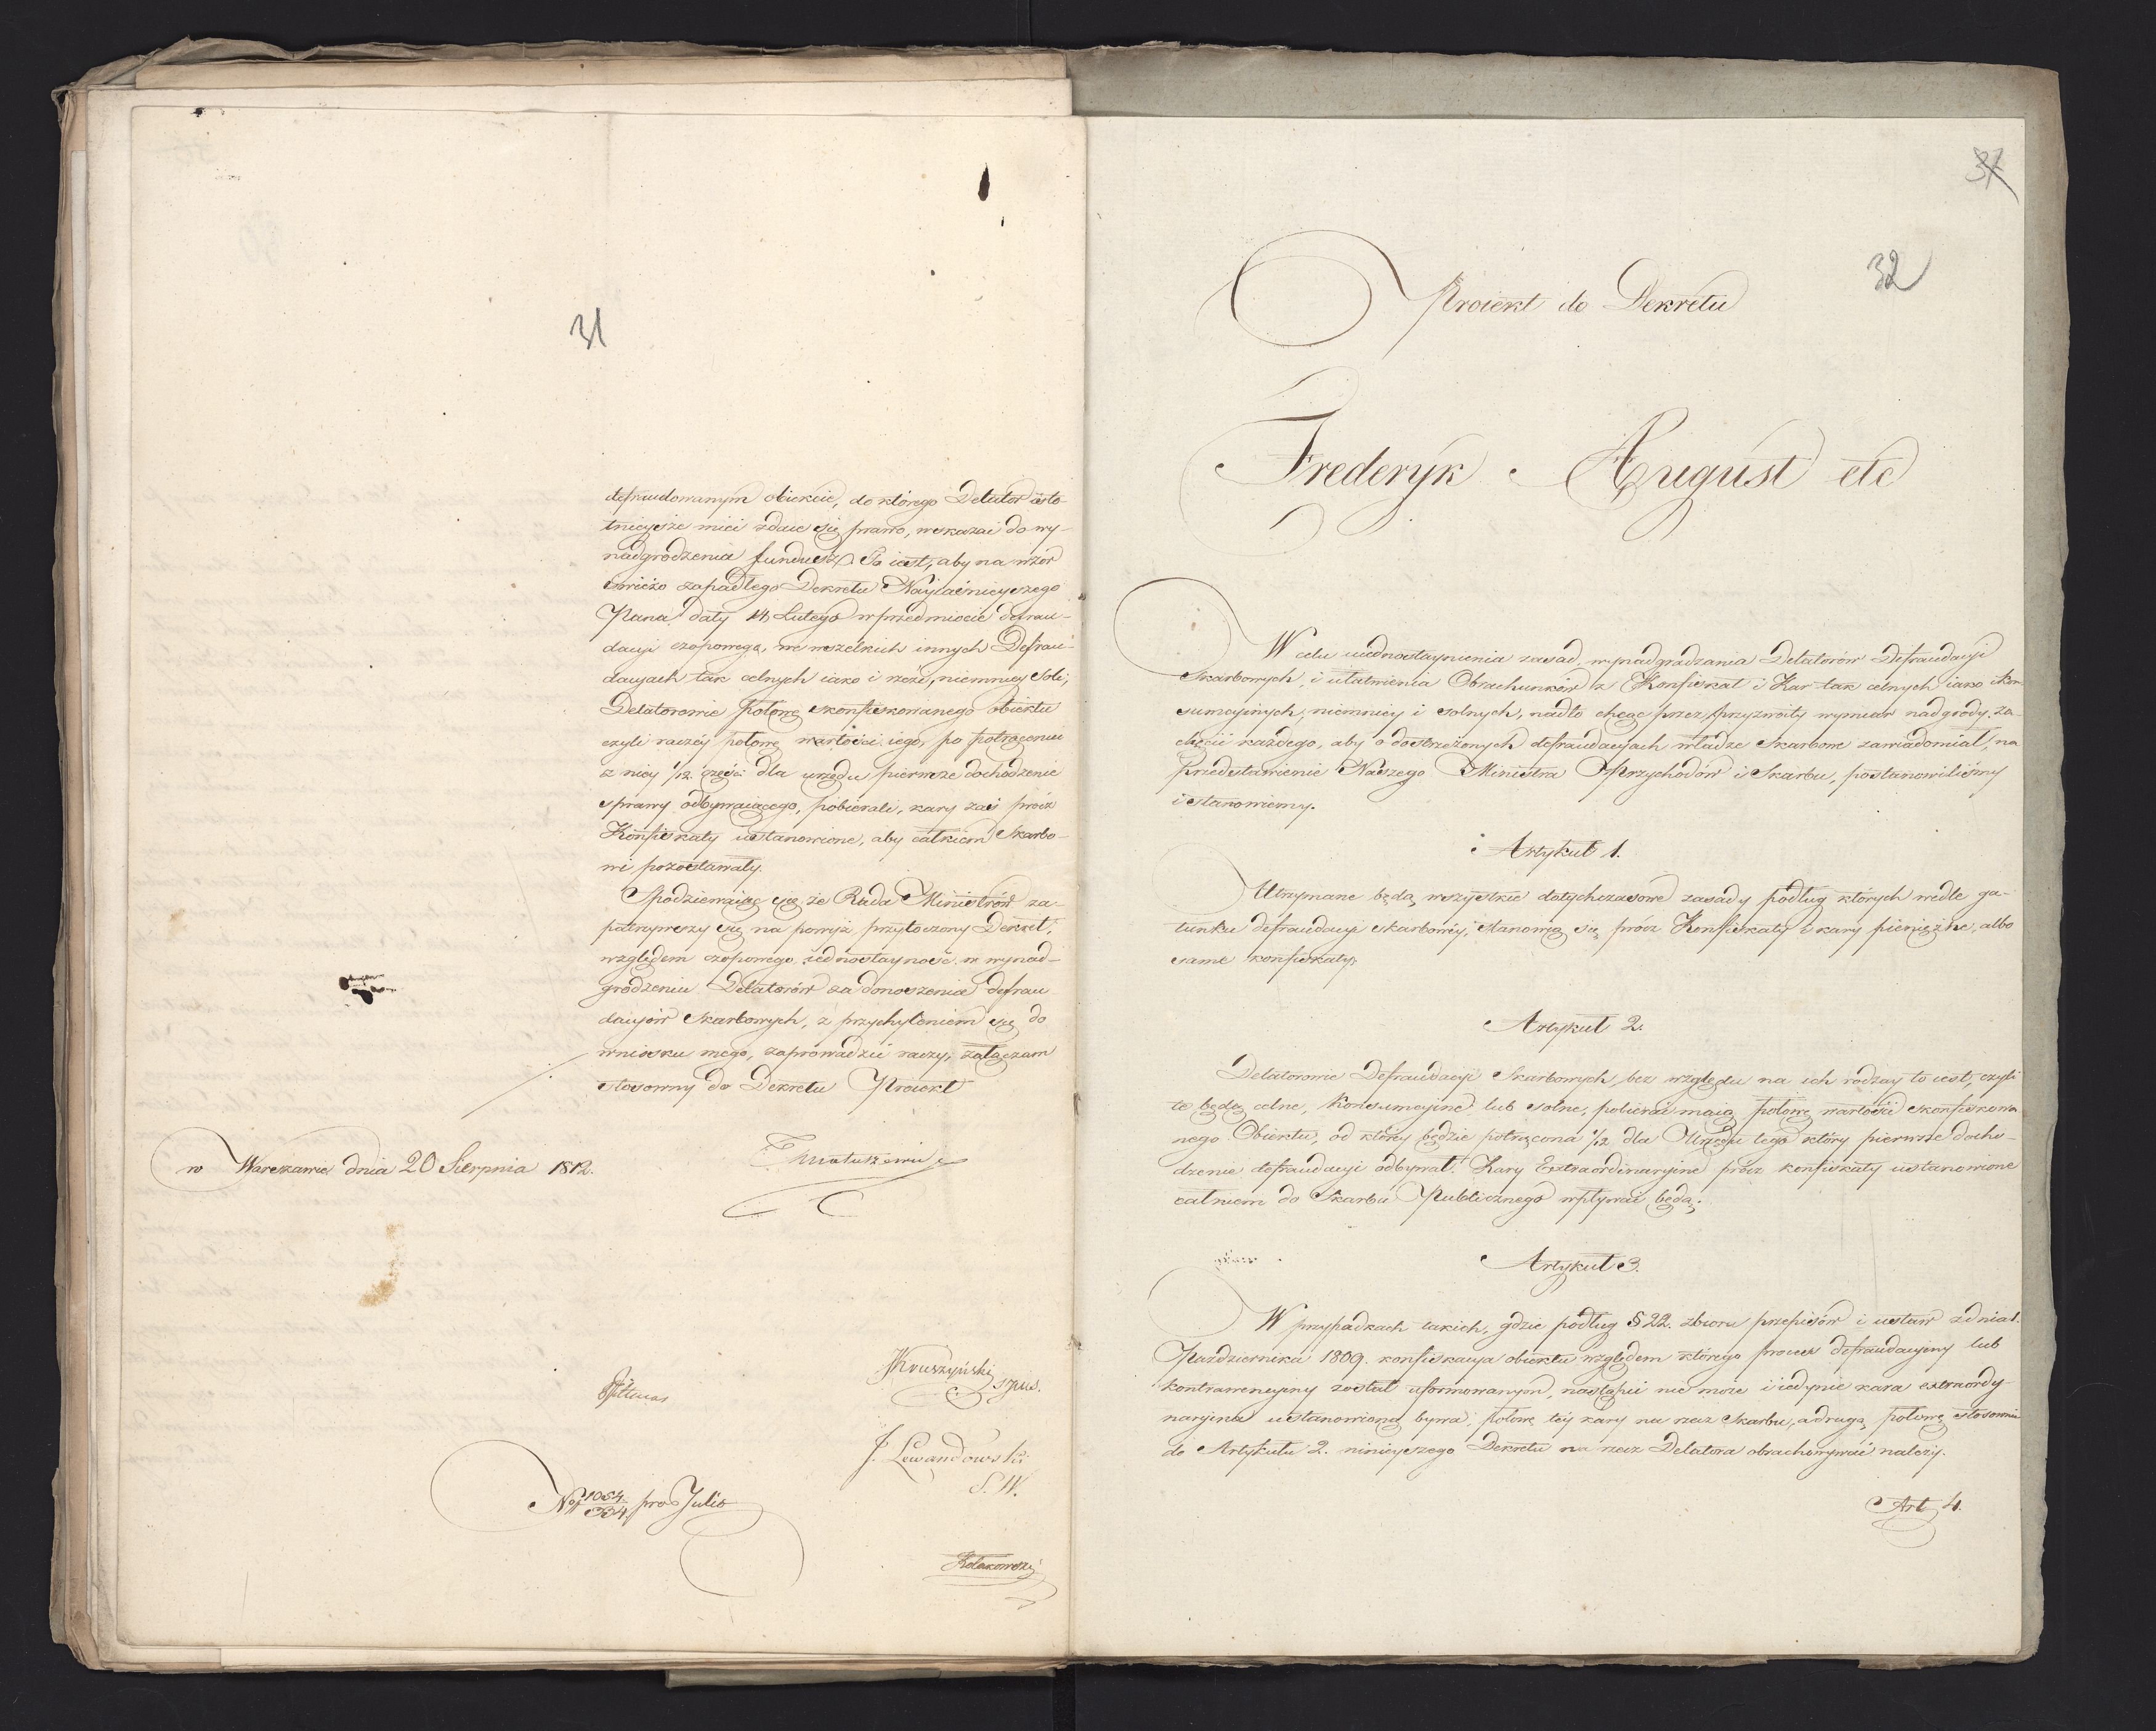 31
defraudowanym obiekcie, do którego Delator isto-
tnieysze mieć zdaie się prawo, wskazać do wy-
nadgrodzenia fundusz. To iest, aby na wzór
świeżo zapadłego Dekretu Nayiaśnieyszego
Pana daty 14 Lutego w przedmiocie defrau-
dacyi czopowego, we wszelkich innych Defrau-
dacyach tak celnych iako i rzezi, niemniey Soli,
Delatorowie połowę skonfiskowanego obiektu
czyli raczéy połowę wartości iego, po potrąceniu
z niey 1/12 części dla urzędu pierwsze dochodzenie
sprawy odbywaiącego, pobierali, kary zaś prócz
Konfiskaty ustanowione, aby całkiem Skarbo-
wi pozostawały.
Spodziewaiąc się, że Rada Ministrów za-
patrzywszy się na powyż przytoczony Dekret,
względem czopowego, iednostayność w wynad-
grodzeniu Delatorów za donoszenia defrau
dacyów Skarbowych, z przychyleniem się do
wniosku mego, zaprowadzić raczy, załączam
stosowny do Dekretu Proiekt
w Warszawie dnia 20 Sierpnia 1812.
TMatuszewic
JKruszyński
J. Lewandowski
S.W.
No 1054 pro Julio
32
Proiekt do Dekretu
Frederyk August etc
W celu uiednostaynienia zasad, wynadgradzania Delatorów Defraudacyi
Skarbowych, i ułatwienia Obrachunków z Konfiskat i Kar tak celnych iako i kon-
sumcyinych, niemniey i solnych, nadto chcąc przez przyzwoity wymiar nadgrody, za-
chęcić każdego, aby o dostrzeżonych defraudacyach władze Skarbowe zawiadomiał, na
przedstawienie Naszego Ministra Przychodów i Skarbu, postanowiliśmy
i stanowiemy.
Artykuł 1.
Utrzymane będą, wszystkie dotychczasowe zasady podług których wedle ga-
tunku defraudacyi skarbowéy, stanowią się, prócz Konfiskaty i kary pieniężne, albo
same konfiskaty.
Artykuł 2.
Delatorowie Defraudacyi Skarbowych, bez względu na ich rodzay to iest, czyli
te będą celne, Konsumcyine lub solne, pobierać maią połowę wartości skonfiskowa
nego Obiektu, od któréy będzie potrącona 1/12 dla Urzędu tego który pierwsze docho-
dzenie defraudacyi odbywał. Kary Extraordinaryine prócz konfiskaty ustanowione
całkiem do Skarbu Publicznego wpływać będą.
Artykuł 3.
W przypadkach takich, gdzie podług § 22. zbioru przepisów i ustaw z dnia 1.
Października 1809. konfiskacya obiektu względem którego proces defraudacyiny lub
kontrawencyiny został uformowanym, nastąpić nie może i iedynie kara extraordy-
naryina ustanowioną bywa; połowę téy kary na rzecz Skarbu, a drugą połowę stosownie
do Artykułu 2. ninieyszego Dekretu na rzecz Delatora obrachowywać należy.
Art 4.